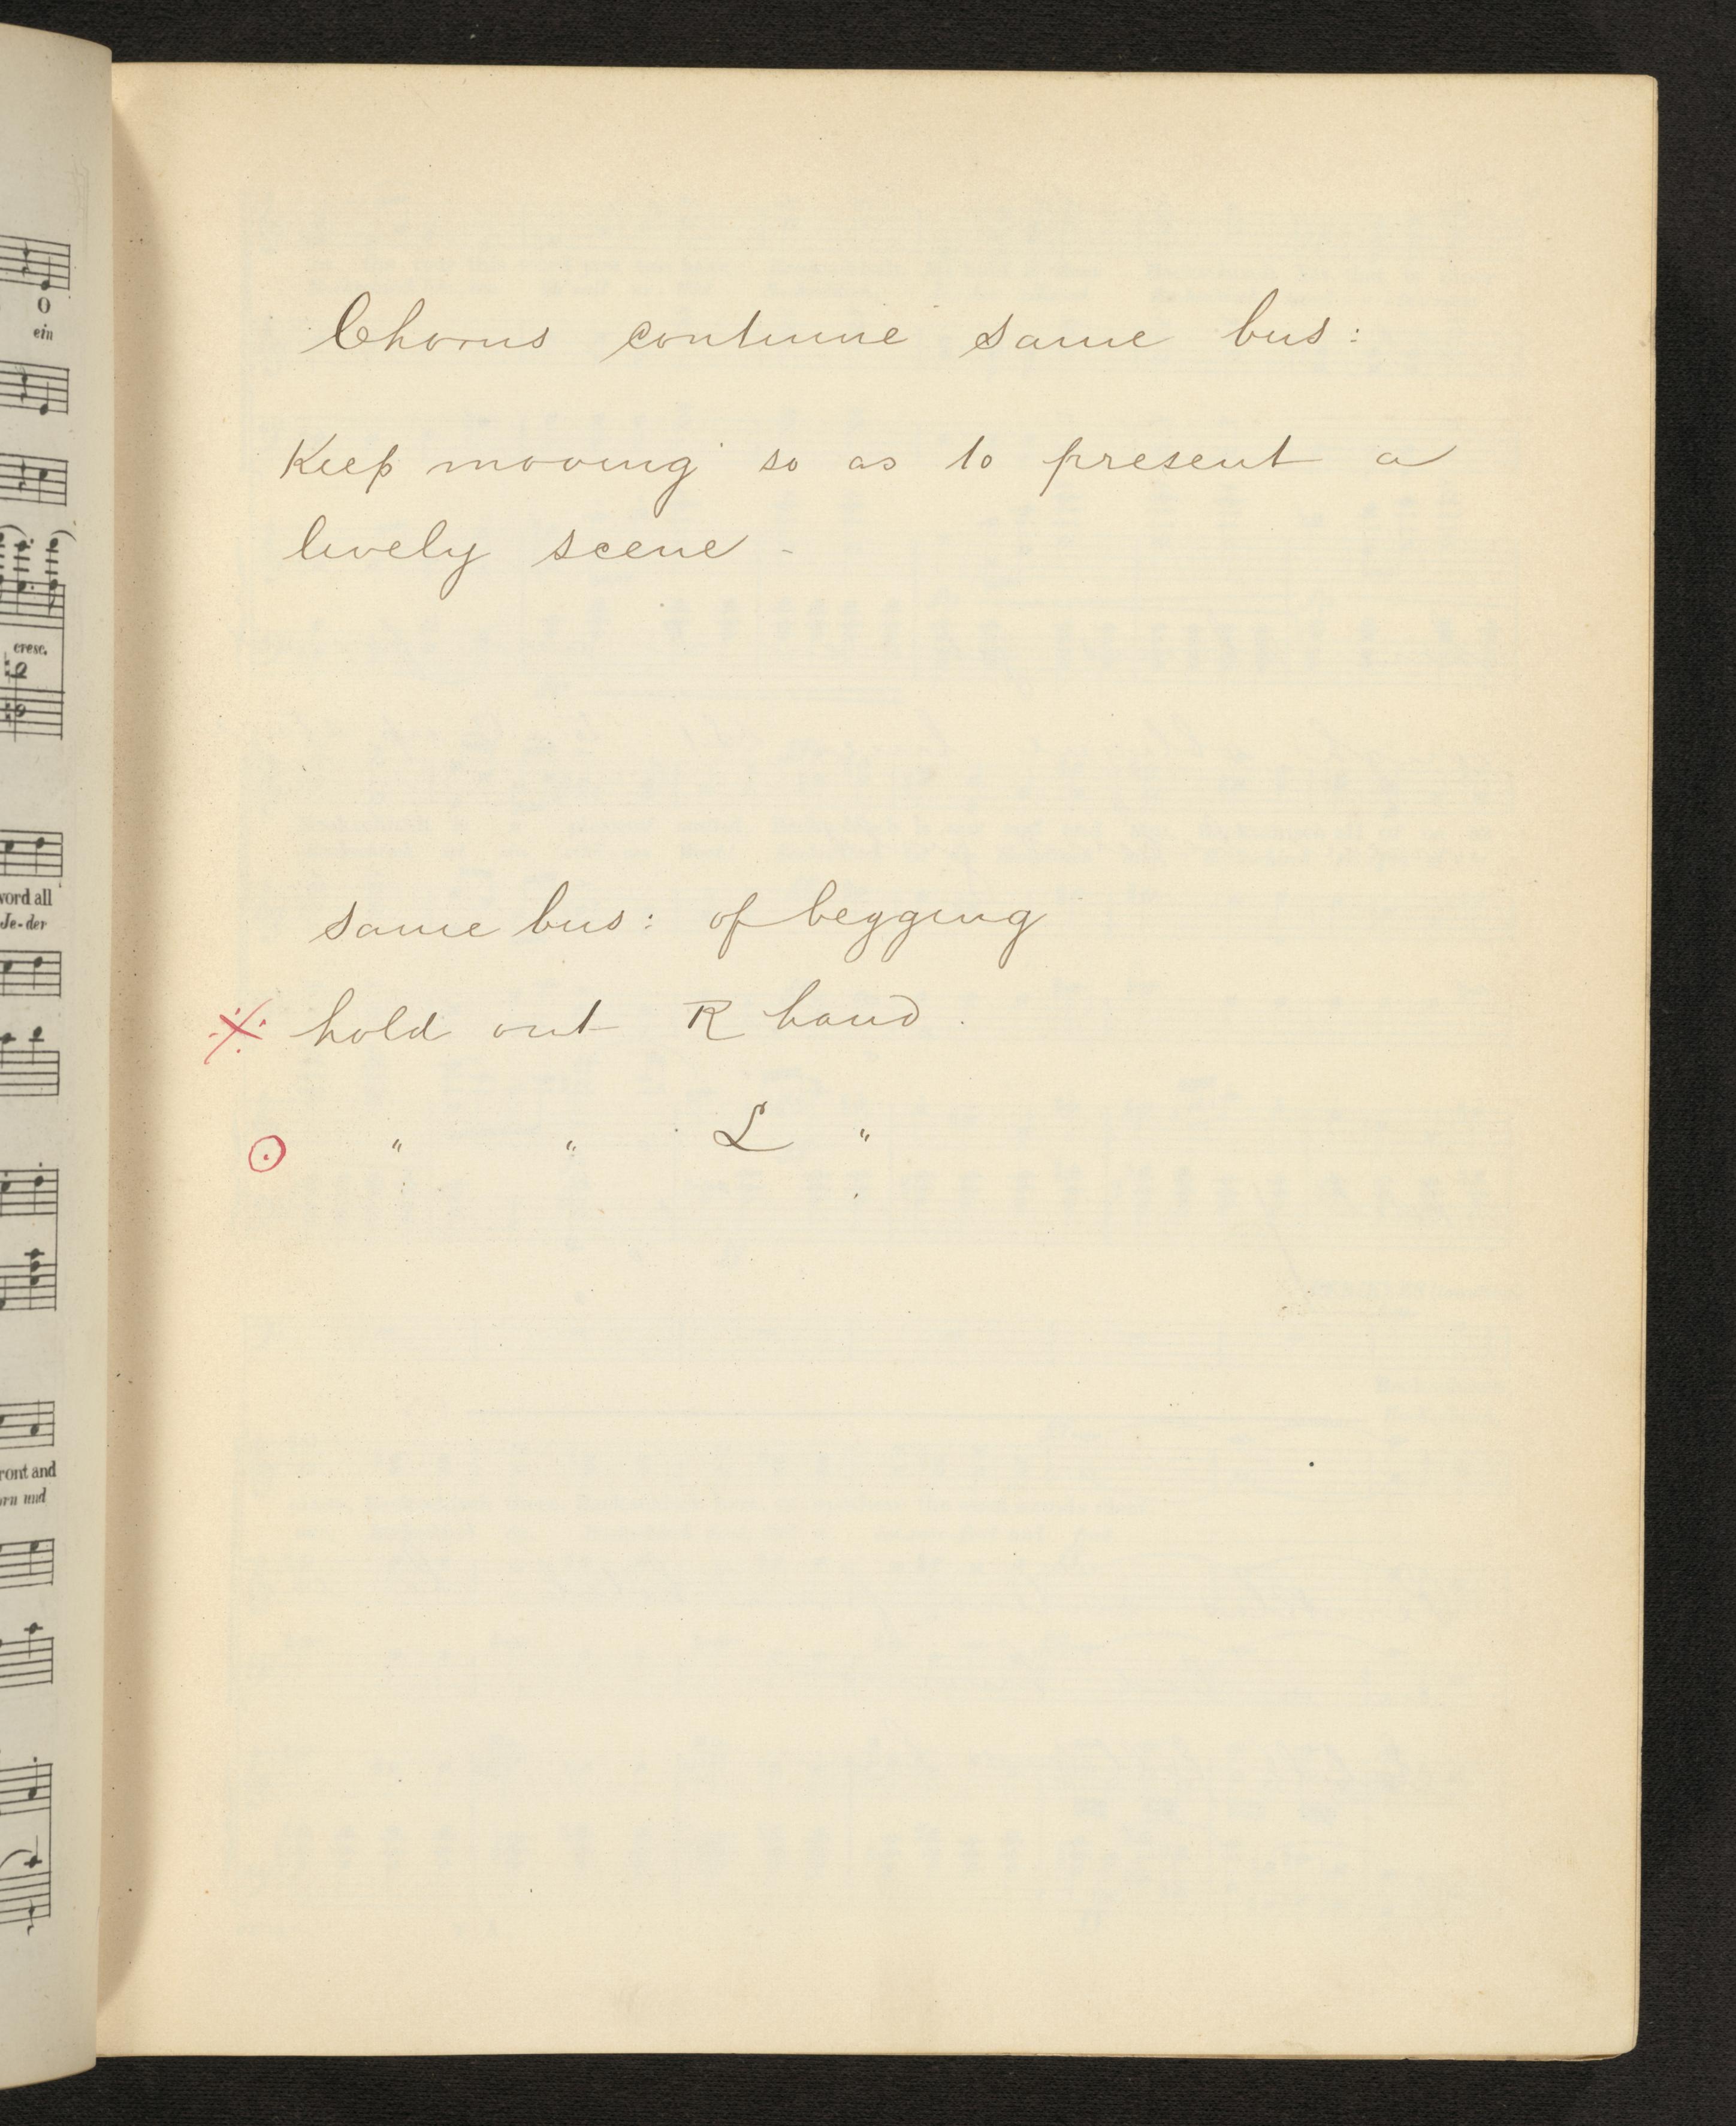 O
ein
cresc.
word all
Je-der
ront and
orn und
Chorus continue same bus:
Keep moving so as to present a
lively scene -
same bus: of begging
※ hold out R hand.
⊙ " " L "